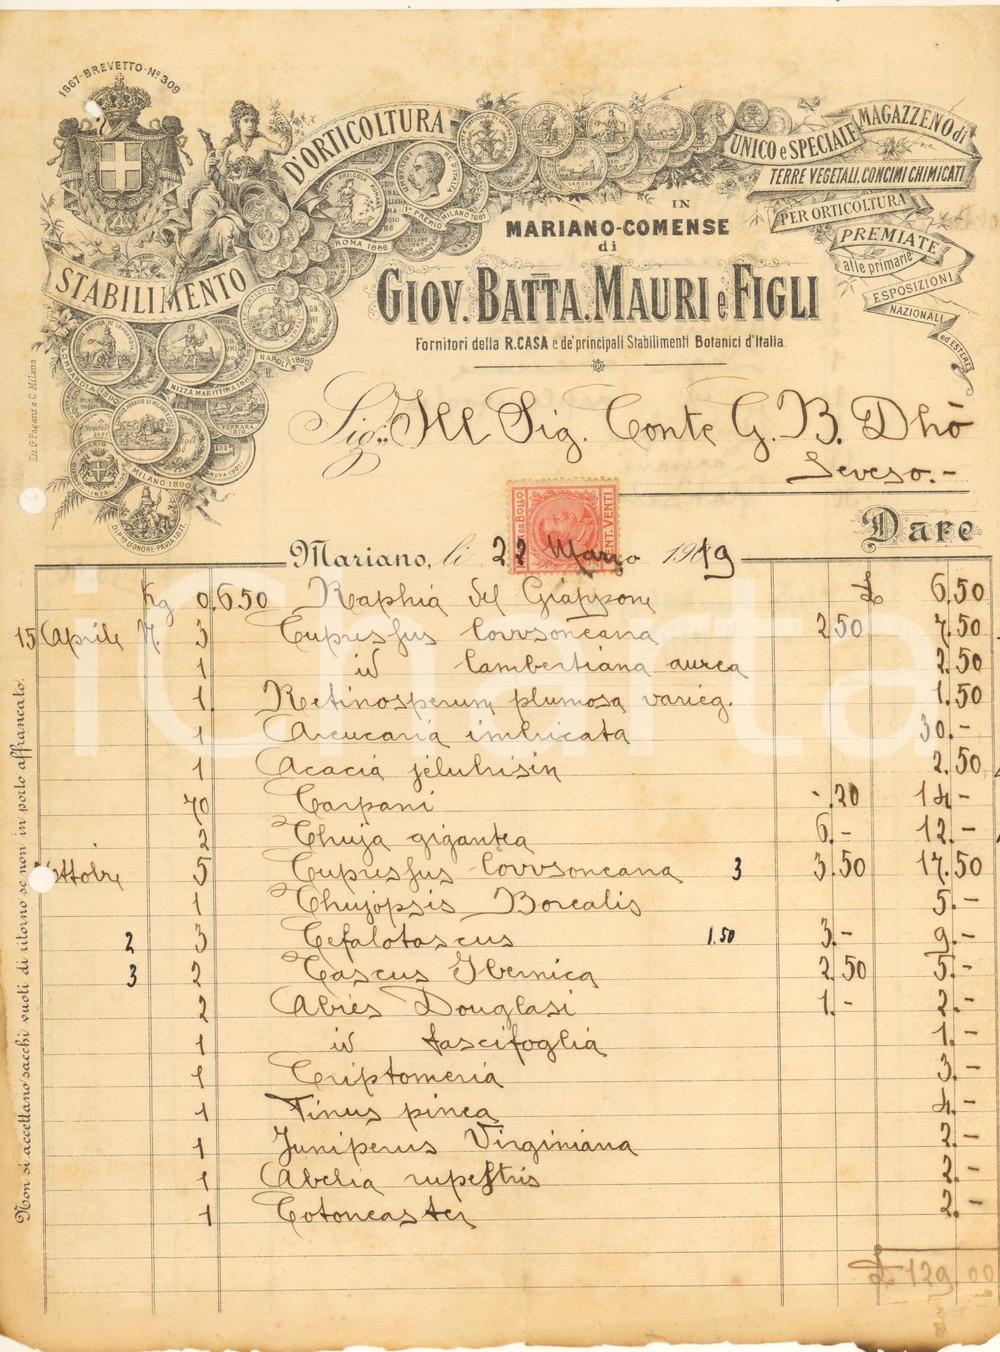 1867-BREVETTO-Nº 309
STABILIMENTO
D'ORTICOLTURA
UNICO e SPECIALE MAGAZZENO di
TERRE VEGETALI, CONCIMI CHIMICATI
PER ORTICOLTURA
PREMIATE
alle primarie
ESPOSIZIONI
NAZIONALI
ed ESTERE
IN
MARIANO-COMENSE
di
GIOV. BATTA. MAURI e FIGLI
Fornitori della R. CASA e de' principali Stabilimenti Botanici d'Italia.
1º PREMIO MILANO 1881
ROMA 1886
NAPOLI 1890
NIZZA MARITTIMA
FERRARA
MILANO 1890
Sig.r Ill Sig. Conte G. B. Dhò
Seveso.-
CENT. VENTI
Dare
Mariano, li 22 Marzo 1919
Kg 0,650 Raphia del Giappone £ 6.50
15 Aprile N. 3 Cupressus Lovvsoneana 2.50 7.50
1 id Lambertiana aurea 2.50
1 Retinosperum plumosa varieg. 1.50
1 Areucaria imbricata 30.-
1 Acacia jelubrisin 2.50
70 Carpani -.20 14-
2 Thuja gigantea 6.- 12.-
Ottobre 5 Cupressus Lovvsoneana 3 3.50 17.50
1 Thujopsis Borealis 5.-
2 3 Cefalotascus 1.50 3.- 9.-
3 2 Tascus Ibernica 2.50 5.-
2 Abies Douglasi 1.- 2.-
1 id fascifoglia 1.-
1 Criptomeria 3.-
1 Pinus pinea 4.-
1 Juniperus Virginiana 2.-
1 Abelia rupestris 2.-
1 Cotoneaster 2.-
£ 129.00
Non si accettano sacchi vuoti di ritorno se non in porto affrancato.
iCharta